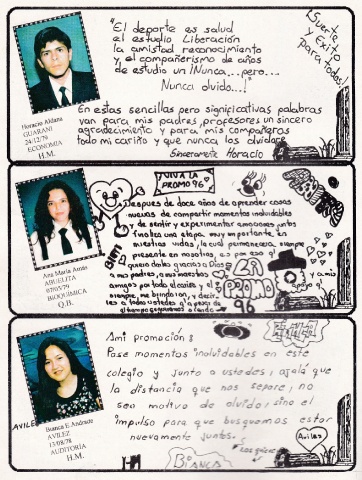 "El deporte es salud
el estudio Liberación
la amistad reconocimiento
y el compañerismo de años
de estudio un ¡Nunca...pero...
Nunca olvido...!"
¡Suerte
y éxito
para todos!
En estas sencillas pero significativas palabras
van para mis padres, profesores un sincero
agradecimiento y para mis compañeros
todo mi cariño y que nunca los olvidaré
Sinceramente Horacio
Horacio Aldana
GUARANI
24/12/79
ECONOMIA
H.M.
¡VIVA LA
PROMO 96"
Despues de doce años de aprender cosas
nuevas de compartir momentos inolvidables
y de sentir y experimentar emociones juntos
finaliza una etapa muy importante en
nuestras vidas, la cual permanecera siempre
presente en nosotros, es por eso q'
quiero darles gracias a Dios
a mis padres, a mis maestros y a mis
amigos por todo el cariño y el apoyo q'
siempre me brindaron, y decir
LA
PROMO
96
Ana María Antas
ABUELITA
07/03/79
BIOQUÍMICA
Q.B.
Ami promoción:
Pase momentos inolvidables en este
colegio y junto a ustedes, ojalá que
la distancia que nos separe, no
sea motivo de olvido, sino el
impulso para que busquemos estar
nuevamente juntos.
Avilez
BIANCA
AVILEZ
Bianca E. Andrade
AVILEZ
13/08/78
AUDITORÍA
H.M.